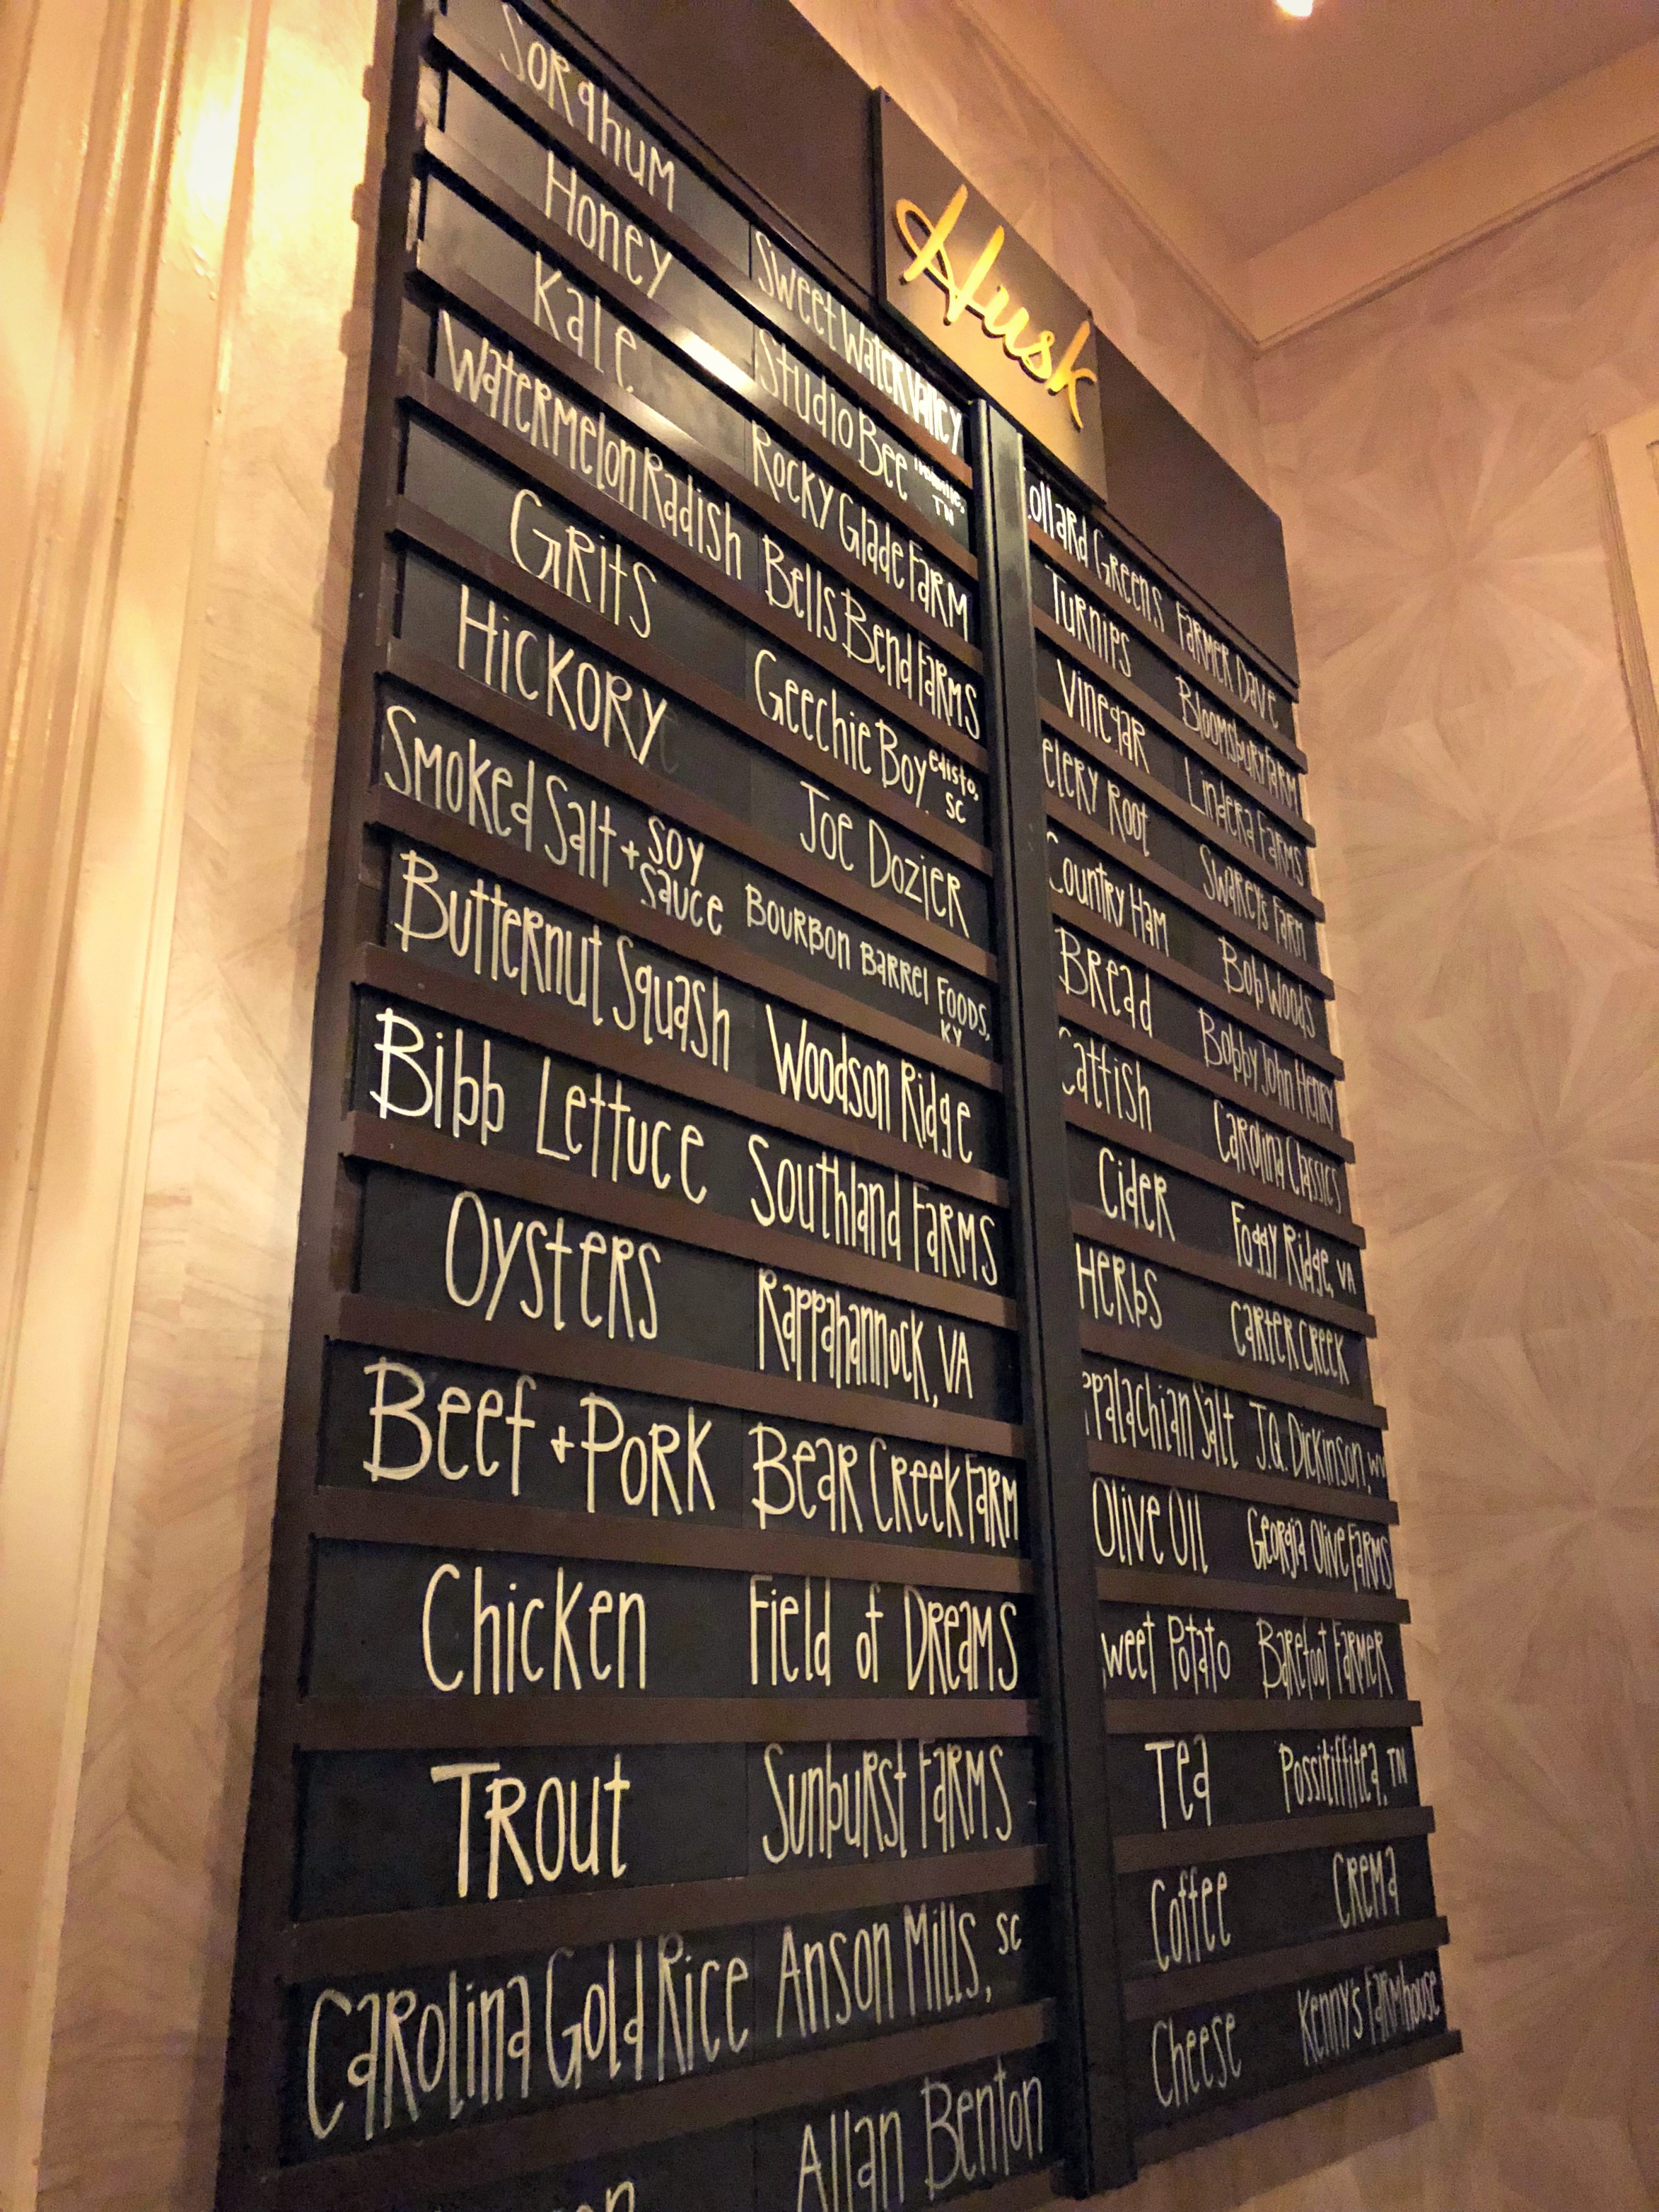 Husk
Sorghum Sweet Water Valley
Honey Studio Bee Nashville, TN
Kale Rocky Glade Farm
Watermelon Radish Bells Bend Farms
Grits Geechie Boy edisto, SC
Hickory Joe Dozier
Smoked Salt + Soy Sauce Bourbon Barrel Foods, KY
Butternut Squash Woodson Ridge
Bibb Lettuce Southland Farms
Oysters Rappahannock, VA
Beef + Pork Bear Creek Farm
Chicken Field of Dreams
Trout Sunburst Farms
Carolina Gold Rice Anson Mills, SC
Allan Benton
ollard Greens Farmer Dave
Turnips Bloomsbury Farm
Vinegar Lindera Farms
elery Root Swarey's Farm
Country Ham Bob Woods
Bread Bobby John Henry
Catfish Carolina Classics
Cider Foggy Ridge, VA
Herbs Carter Creek
ppalachian Salt J.Q. Dickinson, WV
Olive Oil Georgia Olive Farms
weet Potato Barefoot Farmer
Tea Possitiffitea, TN
Coffee Crema
Cheese Kenny's Farmhouse